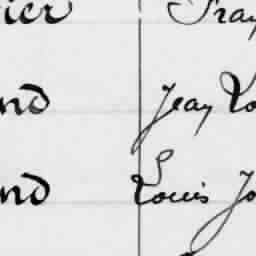 ier Fran
nd Jean Lo
nd Louis Jo